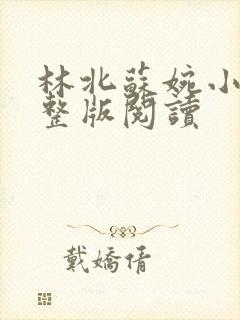 林北蘇婉小
整版閱讀
戴嬌倩